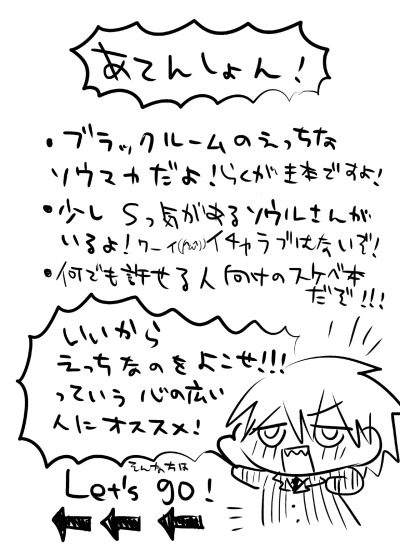 あてんしょん!
・ブラックルームのえっちな
ソウマカだよ!らくがき本ですよ!
・少しSっ気があるソウルさんが
いるよ!ワーイ イチャラブはないぞ!
・何でも許せる人向けのスケベ本
だぞ!!!
いいから
えっちなのをよこせ!!!
っていう心の広い
人にオススメ!
そんなあなたは
Let's go!